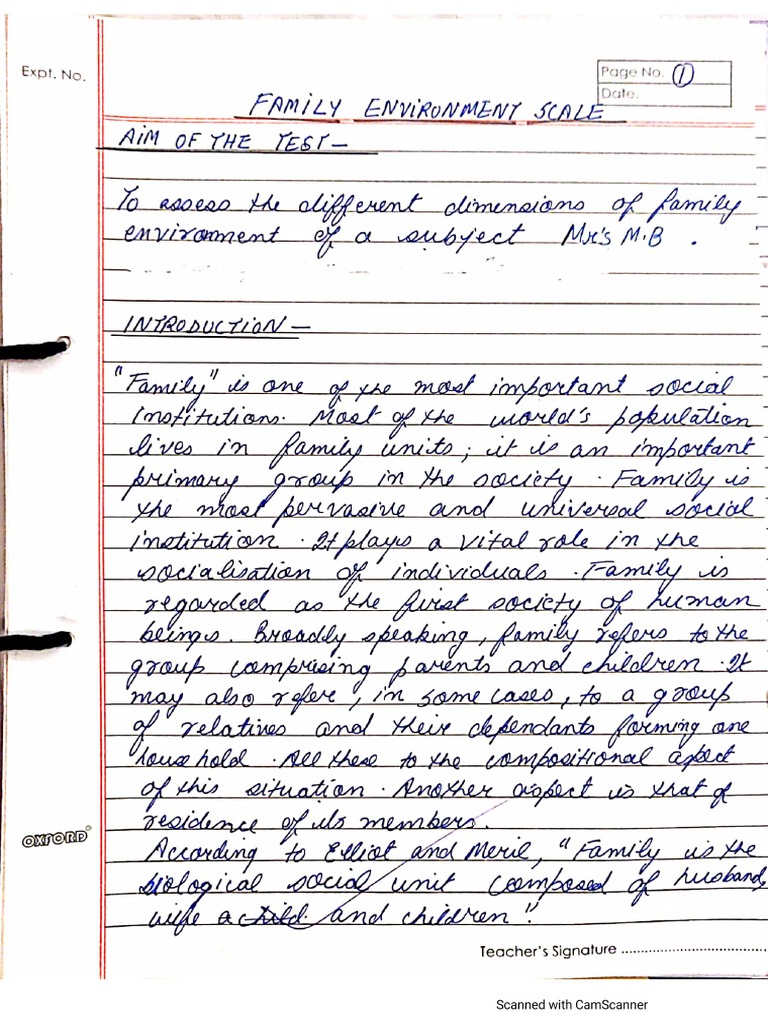 Expt. No.
Page No. 1
Date.
FAMILY ENVIRONMENT SCALE
AIM OF THE TEST—
To assess the different dimensions of family
environment of a subject Mr's M.B .
INTRODUCTION —
"Family" is one of the most important social
institutions. Most of the world's population
lives in family units ; it is an important
primary group in the society . Family is
the most pervasive and universal social
institution . It plays a vital role in the
socialisation of individuals . Family is
regarded as the first society of human
beings. Broadly speaking, family refers to the
group comprising parents and children . It
may also refer, in some cases, to a group
of relatives and their dependants forming one
household . All these to the compositional aspect
of this situation . Another aspect is that of
residence of its members.
According to Elliot and Meril, "Family is the
biological social unit composed of husband,
wife and children".
OXFORD
Teacher's Signature ........................
Scanned with CamScanner